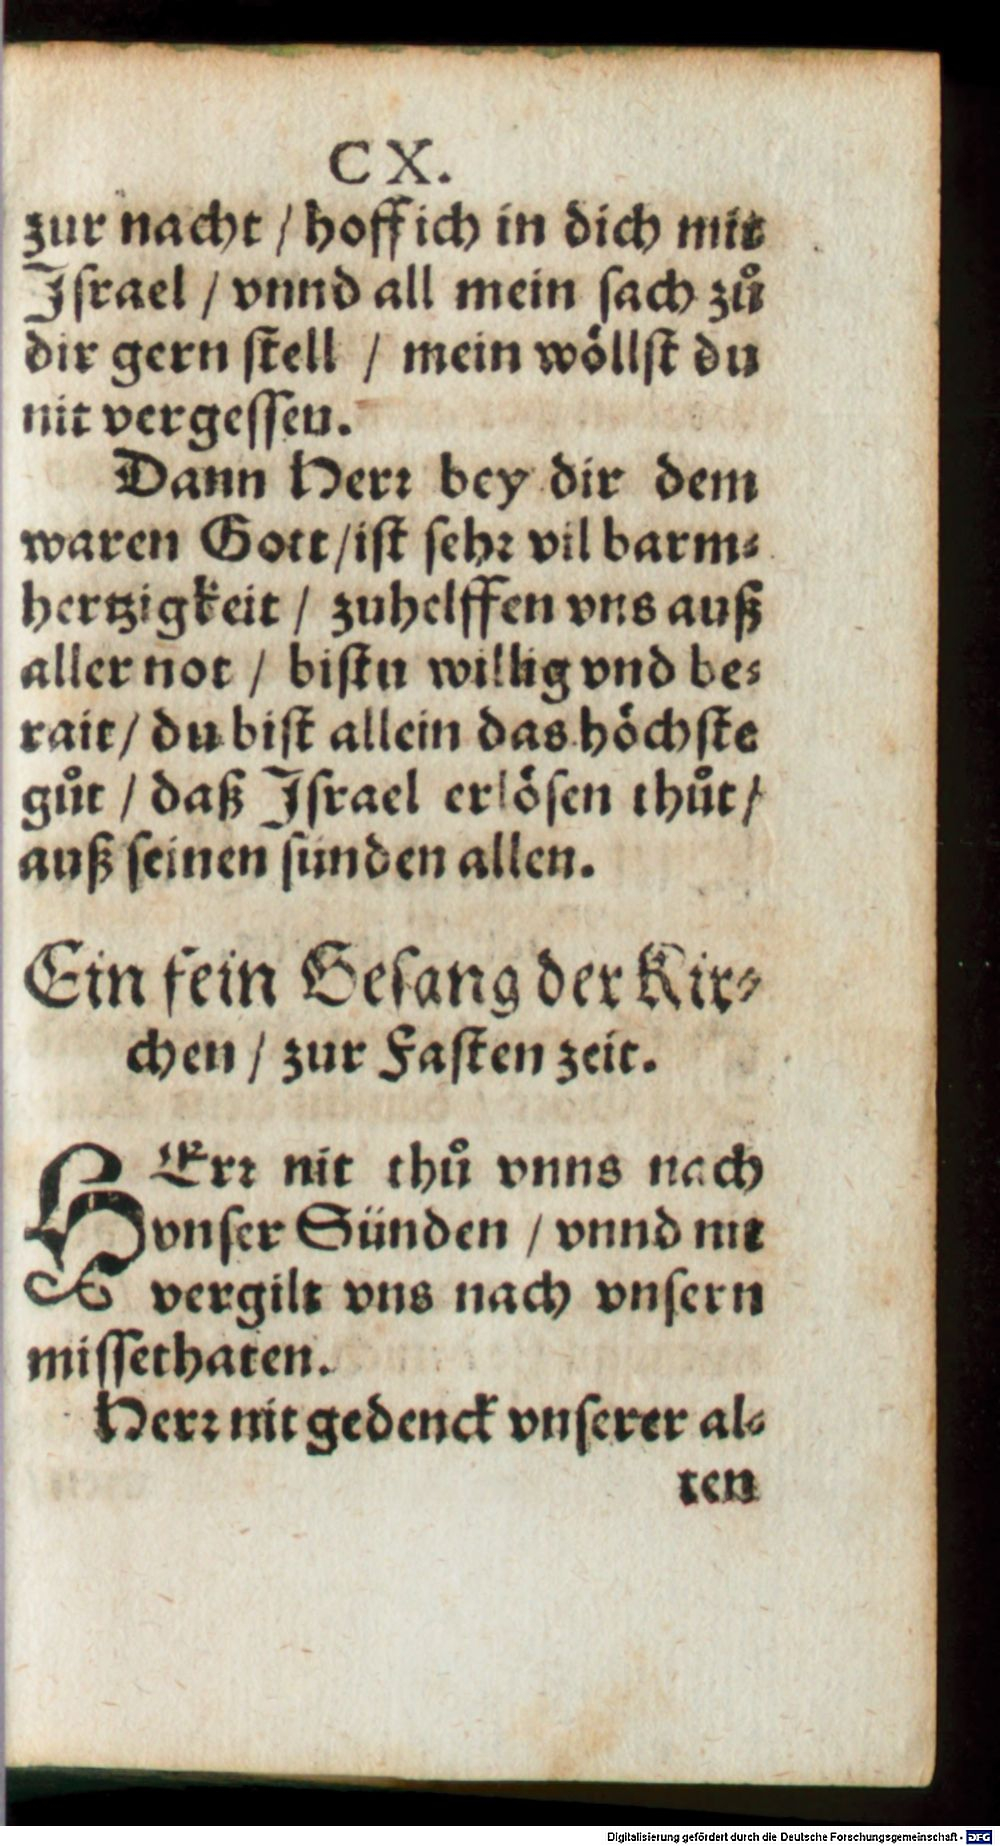 CX.
zur nacht / hoff ich in dich mit
Israel / vnnd all mein sach zů
dir gern stell / mein wöllst du
nit vergessen.
Dann Herr bey dir dem
waren Gott/ist sehr vil barm⸗
hertzigkeit / zuhelffen vns auß
aller not / bistu willig vnd be⸗
rait/ du bist allein das höchste
gůt / daß Israel erlösen thůt/
auß seinen sünden allen.
Ein fein Gesang der Kir⸗
chen / zur Fasten zeit.
HErr nit thů vnns nach
vnser Sünden / vnnd nit
vergilt vns nach vnsern
missethaten.
Herr nit gedenck vnserer al⸗
ten
Digitalisierung gefördert durch die Deutsche Forschungsgemeinschaft - DFG